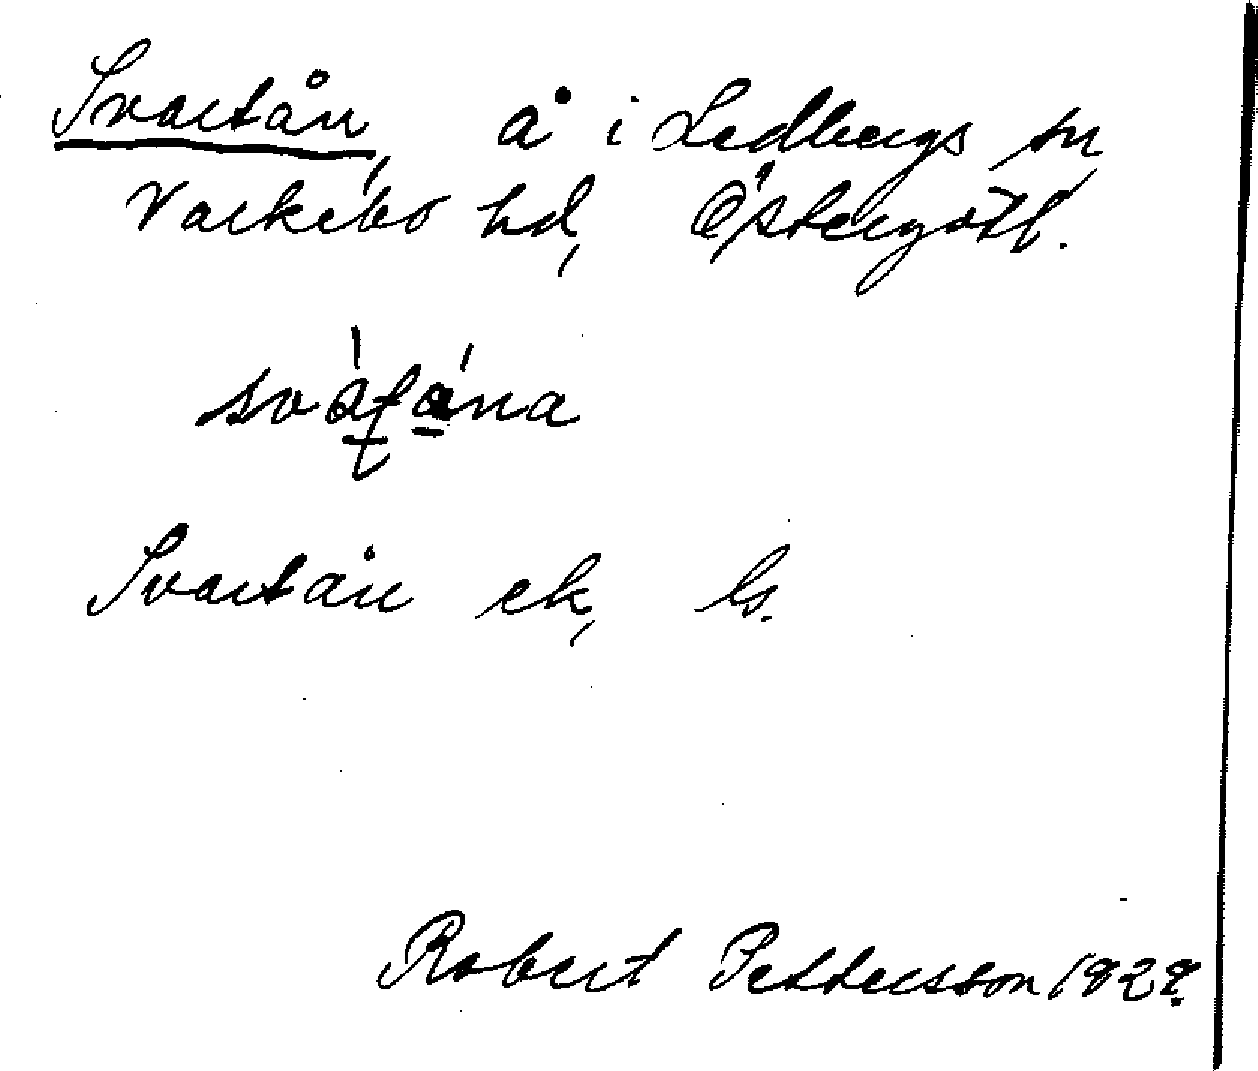 Svartån, å i Ledbergs sn
Valkebo hd, Östergötl.
Svartån ek, ls.
Robert Pettersson 1929.